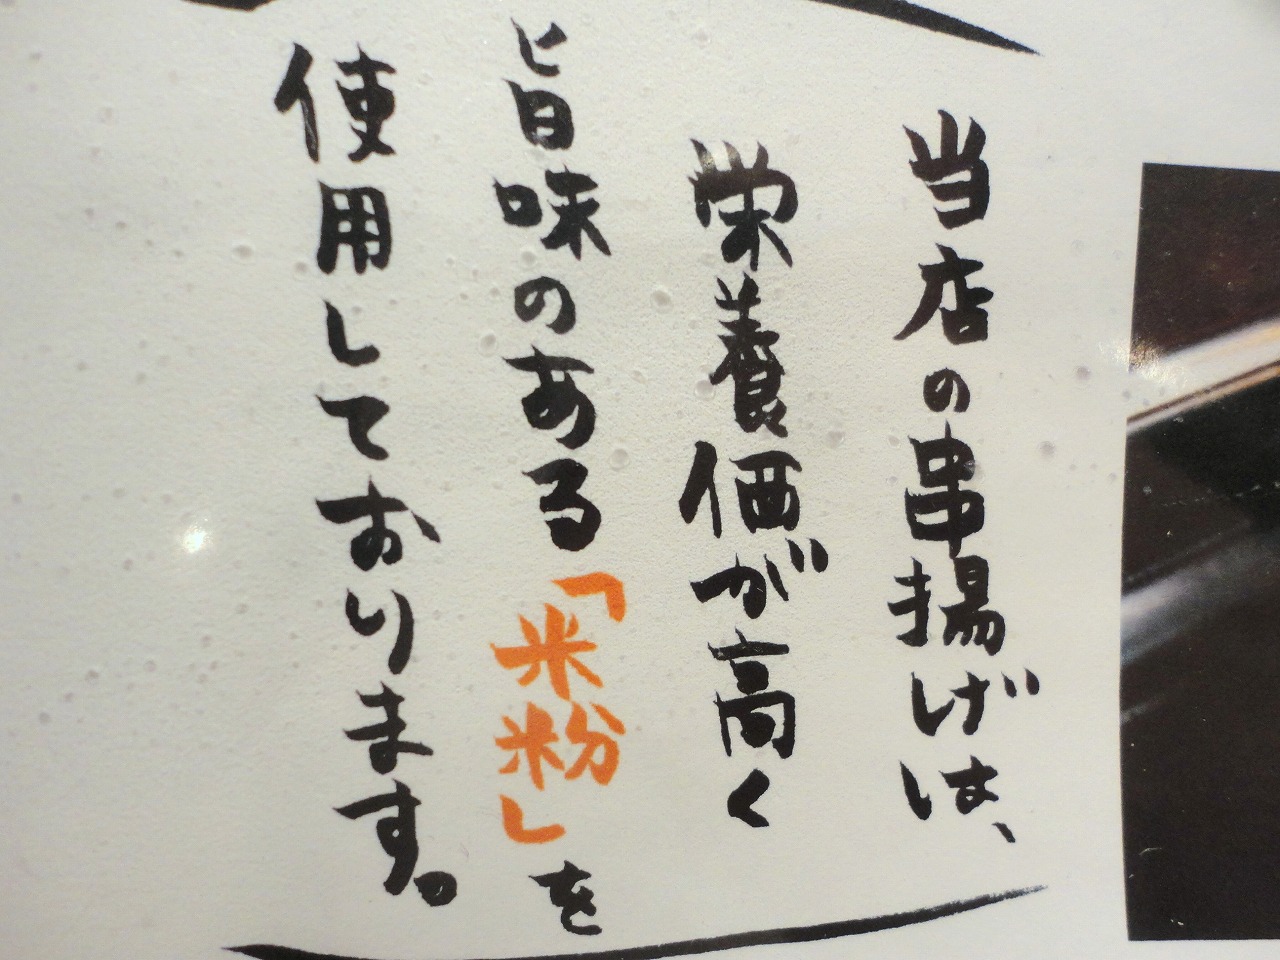 当店の串揚げは、
栄養価が高く
旨味のある「米粉」を
使用しております。